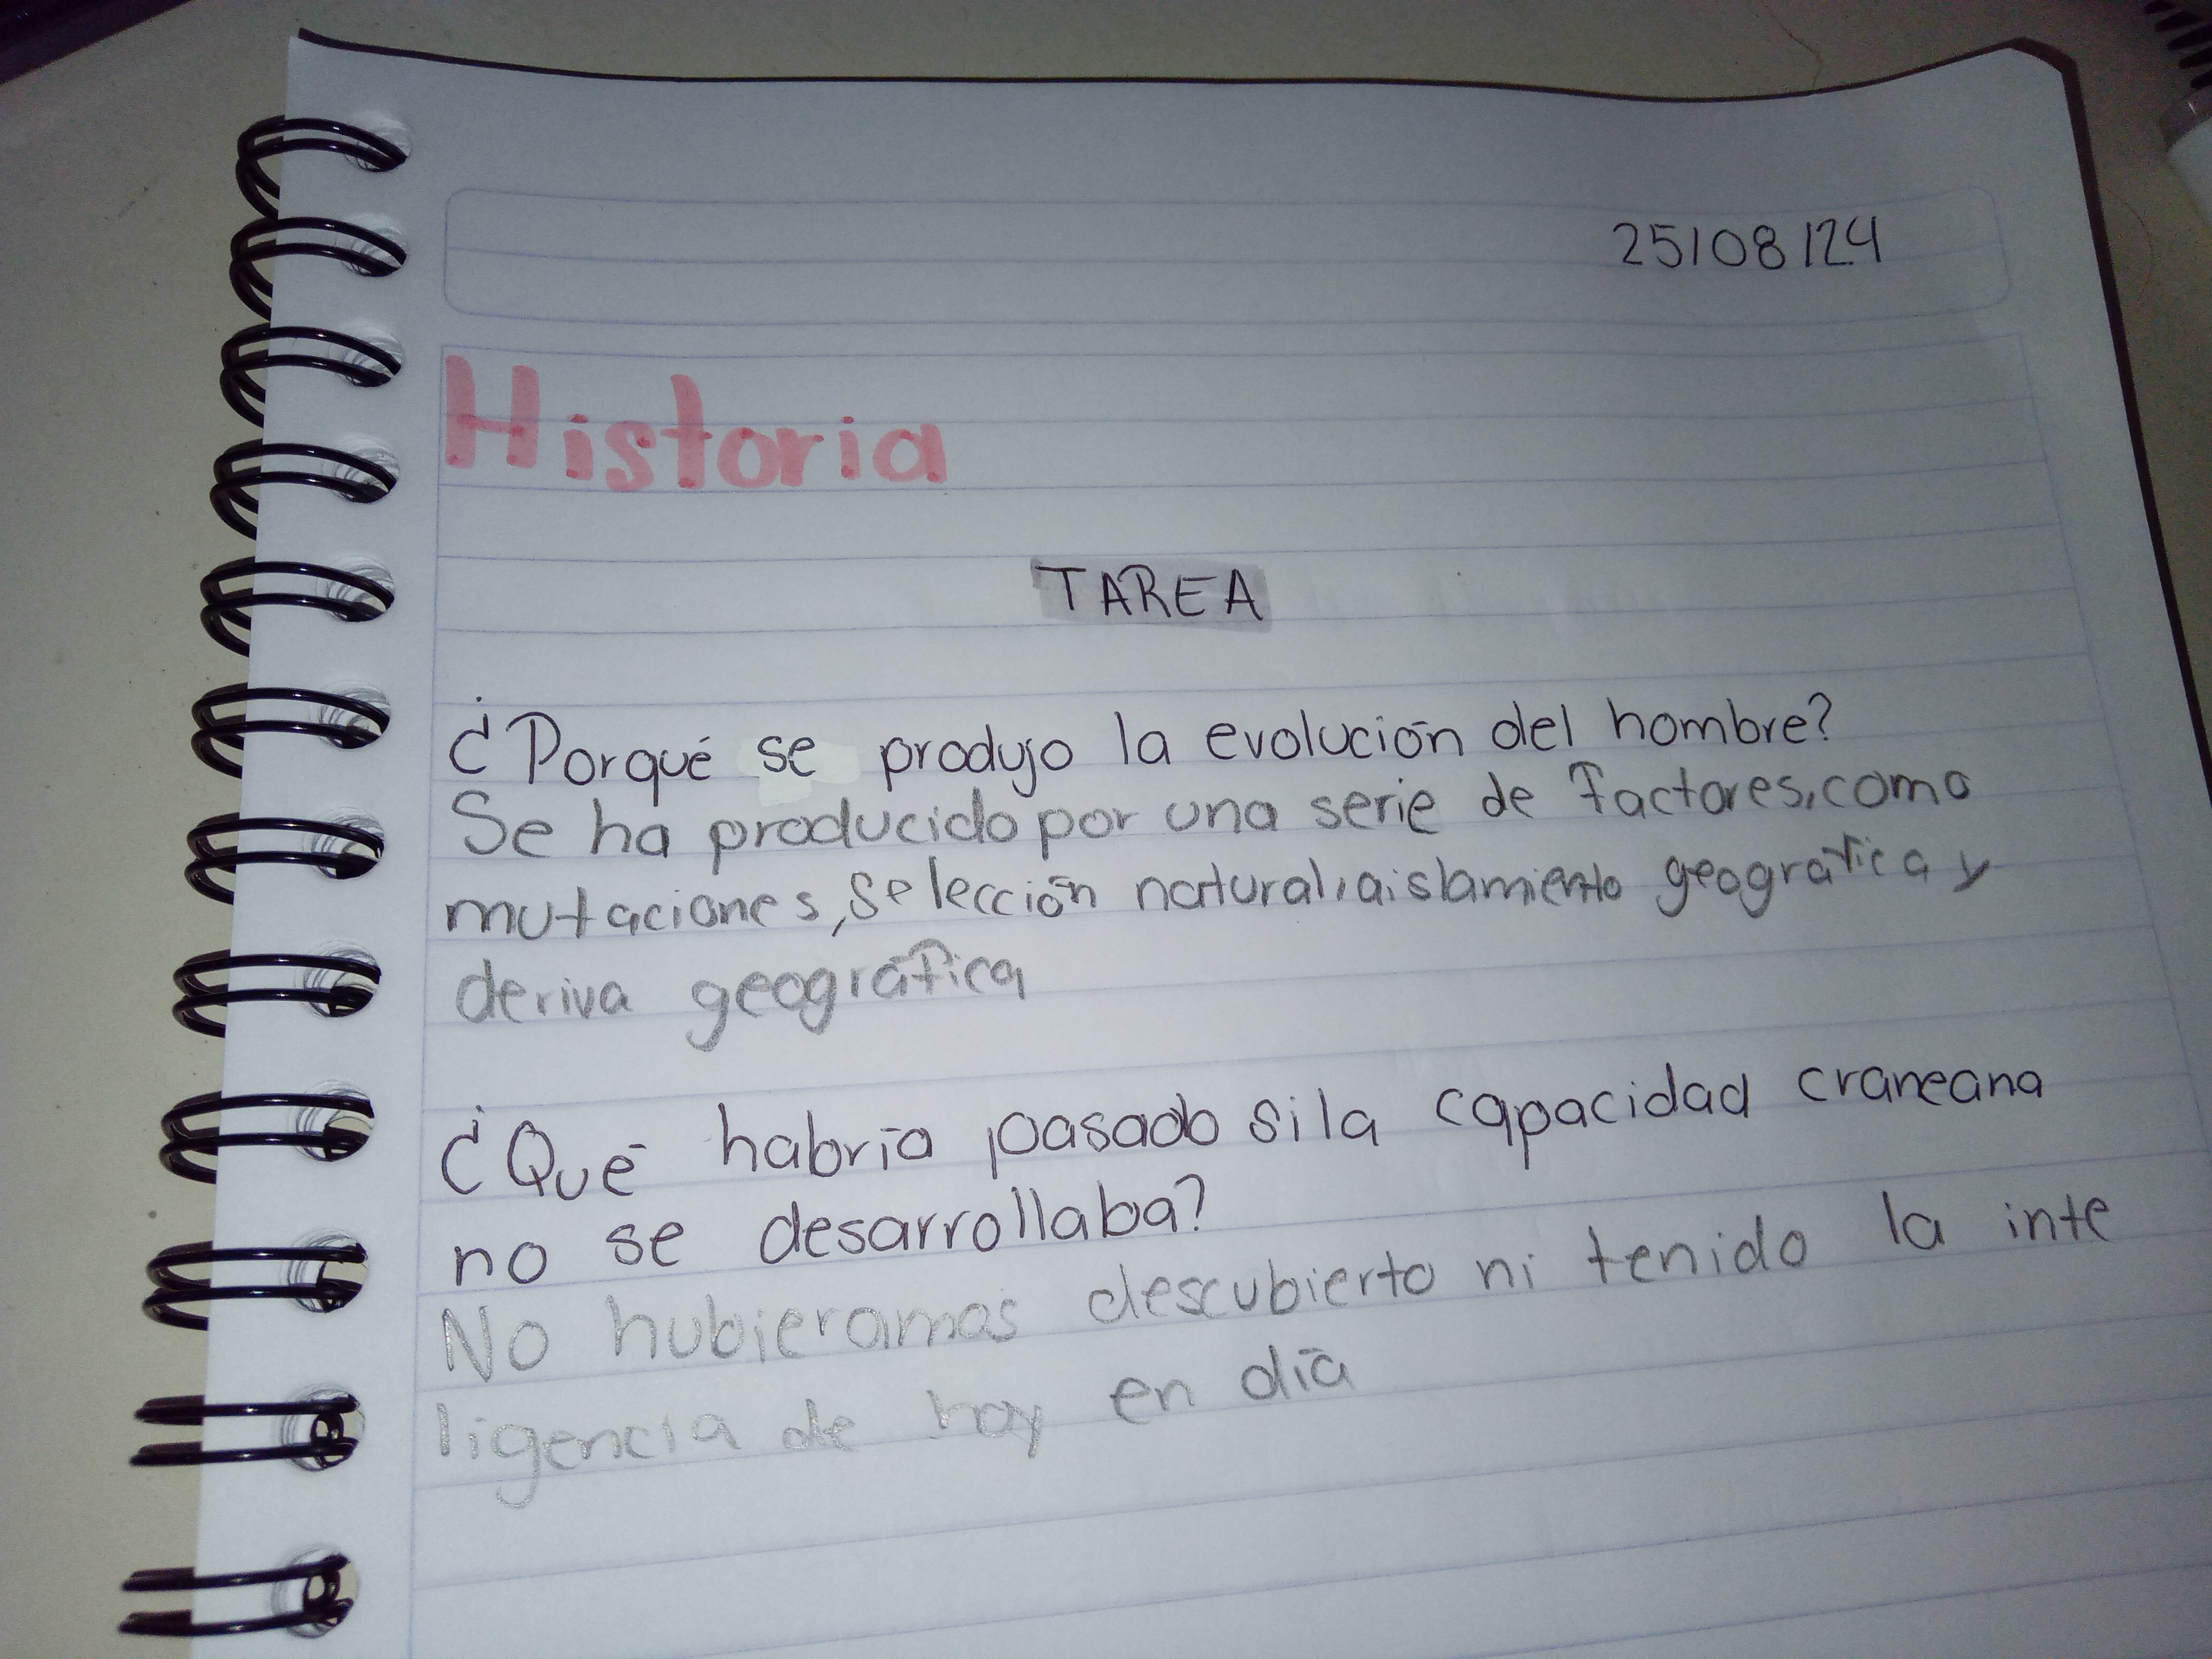 25/08/24
Historia
TAREA
¿Porqué se produjo la evolución del hombre?
Se ha producido por una serie de factores, como
mutaciones, selección natural, aislamiento geográfica y
deriva geográfica
¿Qué habría pasado si la capacidad craneana
no se desarrollaba?
No hubieramos descubierto ni tenido la inte
ligencia de hoy en día